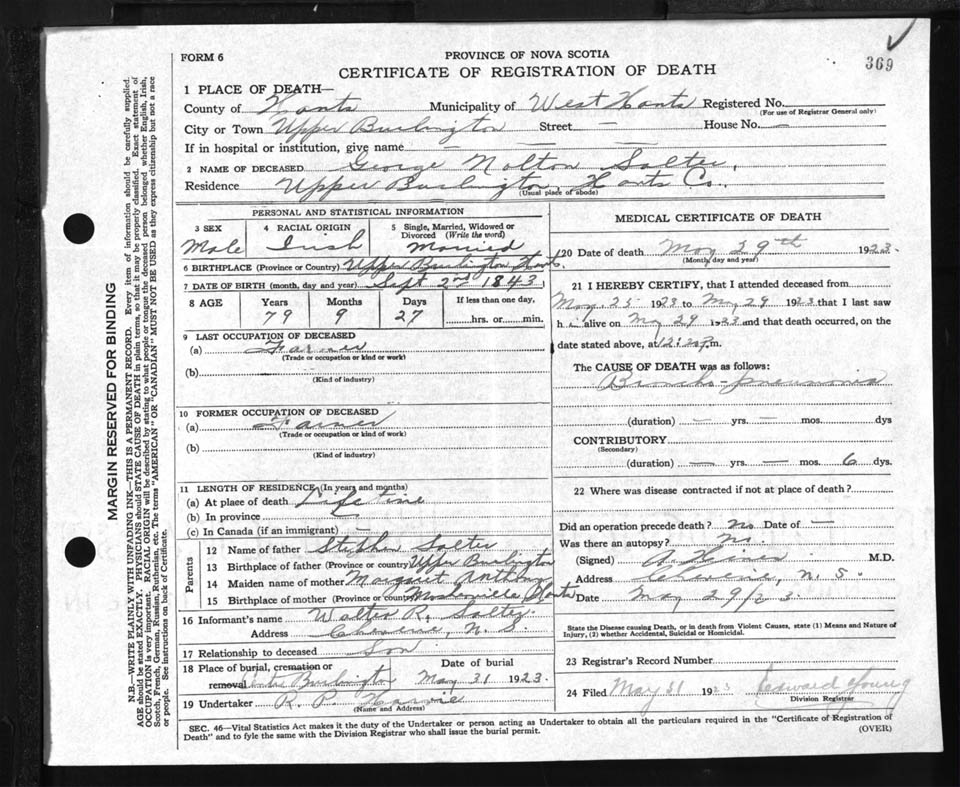 FORM 6
PROVINCE OF NOVA SCOTIA
CERTIFICATE OF REGISTRATION OF DEATH
369
1 PLACE OF DEATH—
County of Hants Municipality of West Hants Registered No.
(For use of Registrar General only)
City or Town Upper Burlington Street — House No. —
If in hospital or institution, give name — — —
2 NAME OF DECEASED George Nolton Salter.
Residence Upper Burlington, Hants Co.
(Usual place of abode)
PERSONAL AND STATISTICAL INFORMATION
3 SEX
Male
4 RACIAL ORIGIN
Irish
5 Single, Married, Widowed or Divorced (Write the word)
Married
6 BIRTHPLACE (Province or Country) Upper Burlington Hants.
7 DATE OF BIRTH (month, day and year) Sept 2nd 1843
8 AGE Years Months Days If less than one day,
79 9 27 hrs. or min.
9 LAST OCCUPATION OF DECEASED
(a) Farmer
(Trade or occupation or kind of work)
(b)
(Kind of industry)
10 FORMER OCCUPATION OF DECEASED
(a) Farmer
(Trade or occupation or kind of work)
(b)
(Kind of industry)
11 LENGTH OF RESIDENCE (In years and months)
(a) At place of death Life time
(b) In province
(c) In Canada (if an immigrant) —
Parents
12 Name of father Stephen Salter
13 Birthplace of father (Province or country) Upper Burlington
14 Maiden name of mother Margaret Anthony
15 Birthplace of mother (Province or country) Mosherville Hants
16 Informant's name Walter R. Salter.
Address Cheverie, N. S.
17 Relationship to deceased Son
18 Place of burial, cremation or removal Burlington
Date of burial May 31 1923.
19 Undertaker R. P. Harvie
(Name and Address)
MEDICAL CERTIFICATE OF DEATH
20 Date of death May 29th 1923.
(Month, day and year)
21 I HEREBY CERTIFY, that I attended deceased from
May 25 1923 to May 29 1923 that I last saw
h alive on May 29 1923 and that death occurred, on the
date stated above, at 12:20 P.m.
The CAUSE OF DEATH was as follows:
Broncho-pneumonia
(duration) — yrs. — mos. dys
CONTRIBUTORY
(Secondary)
(duration) — yrs. — mos. 6 dys.
22 Where was disease contracted if not at place of death?
Did an operation precede death? No Date of —
Was there an autopsy? No.
(Signed) M.D.
Address Cheverie, N. S.
Date May 29/23.
State the Disease causing Death, or in death from Violent Causes, state (1) Means and Nature of Injury, (2) whether Accidental, Suicidal or Homicidal.
23 Registrar's Record Number
24 Filed May 31 1923 Edward Young
Division Registrar
SEC. 46—Vital Statistics Act makes it the duty of the Undertaker or person acting as Undertaker to obtain all the particulars required in the "Certificate of Registration of
Death" and to fyle the same with the Division Registrar who shall issue the burial permit.
(OVER)
MARGIN RESERVED FOR BINDING
N.B.—WRITE PLAINLY WITH UNFADING INK—THIS IS A PERMANENT RECORD. Every item of information should be carefully supplied.
AGE should be stated EXACTLY. PHYSICIANS should STATE CAUSE OF DEATH in plain terms, so that it may be properly classified. Exact statement of
OCCUPATION is very important. RACIAL ORIGIN will be described by stating to what people or tongue the deceased person belonged whether English, Irish,
Scotch, French, German, Russian, Ruthenian, etc. The terms "AMERICAN" OR "CANADIAN" MUST NOT BE USED as they express citizenship but not a race
or people. See instructions on back of Certificate.